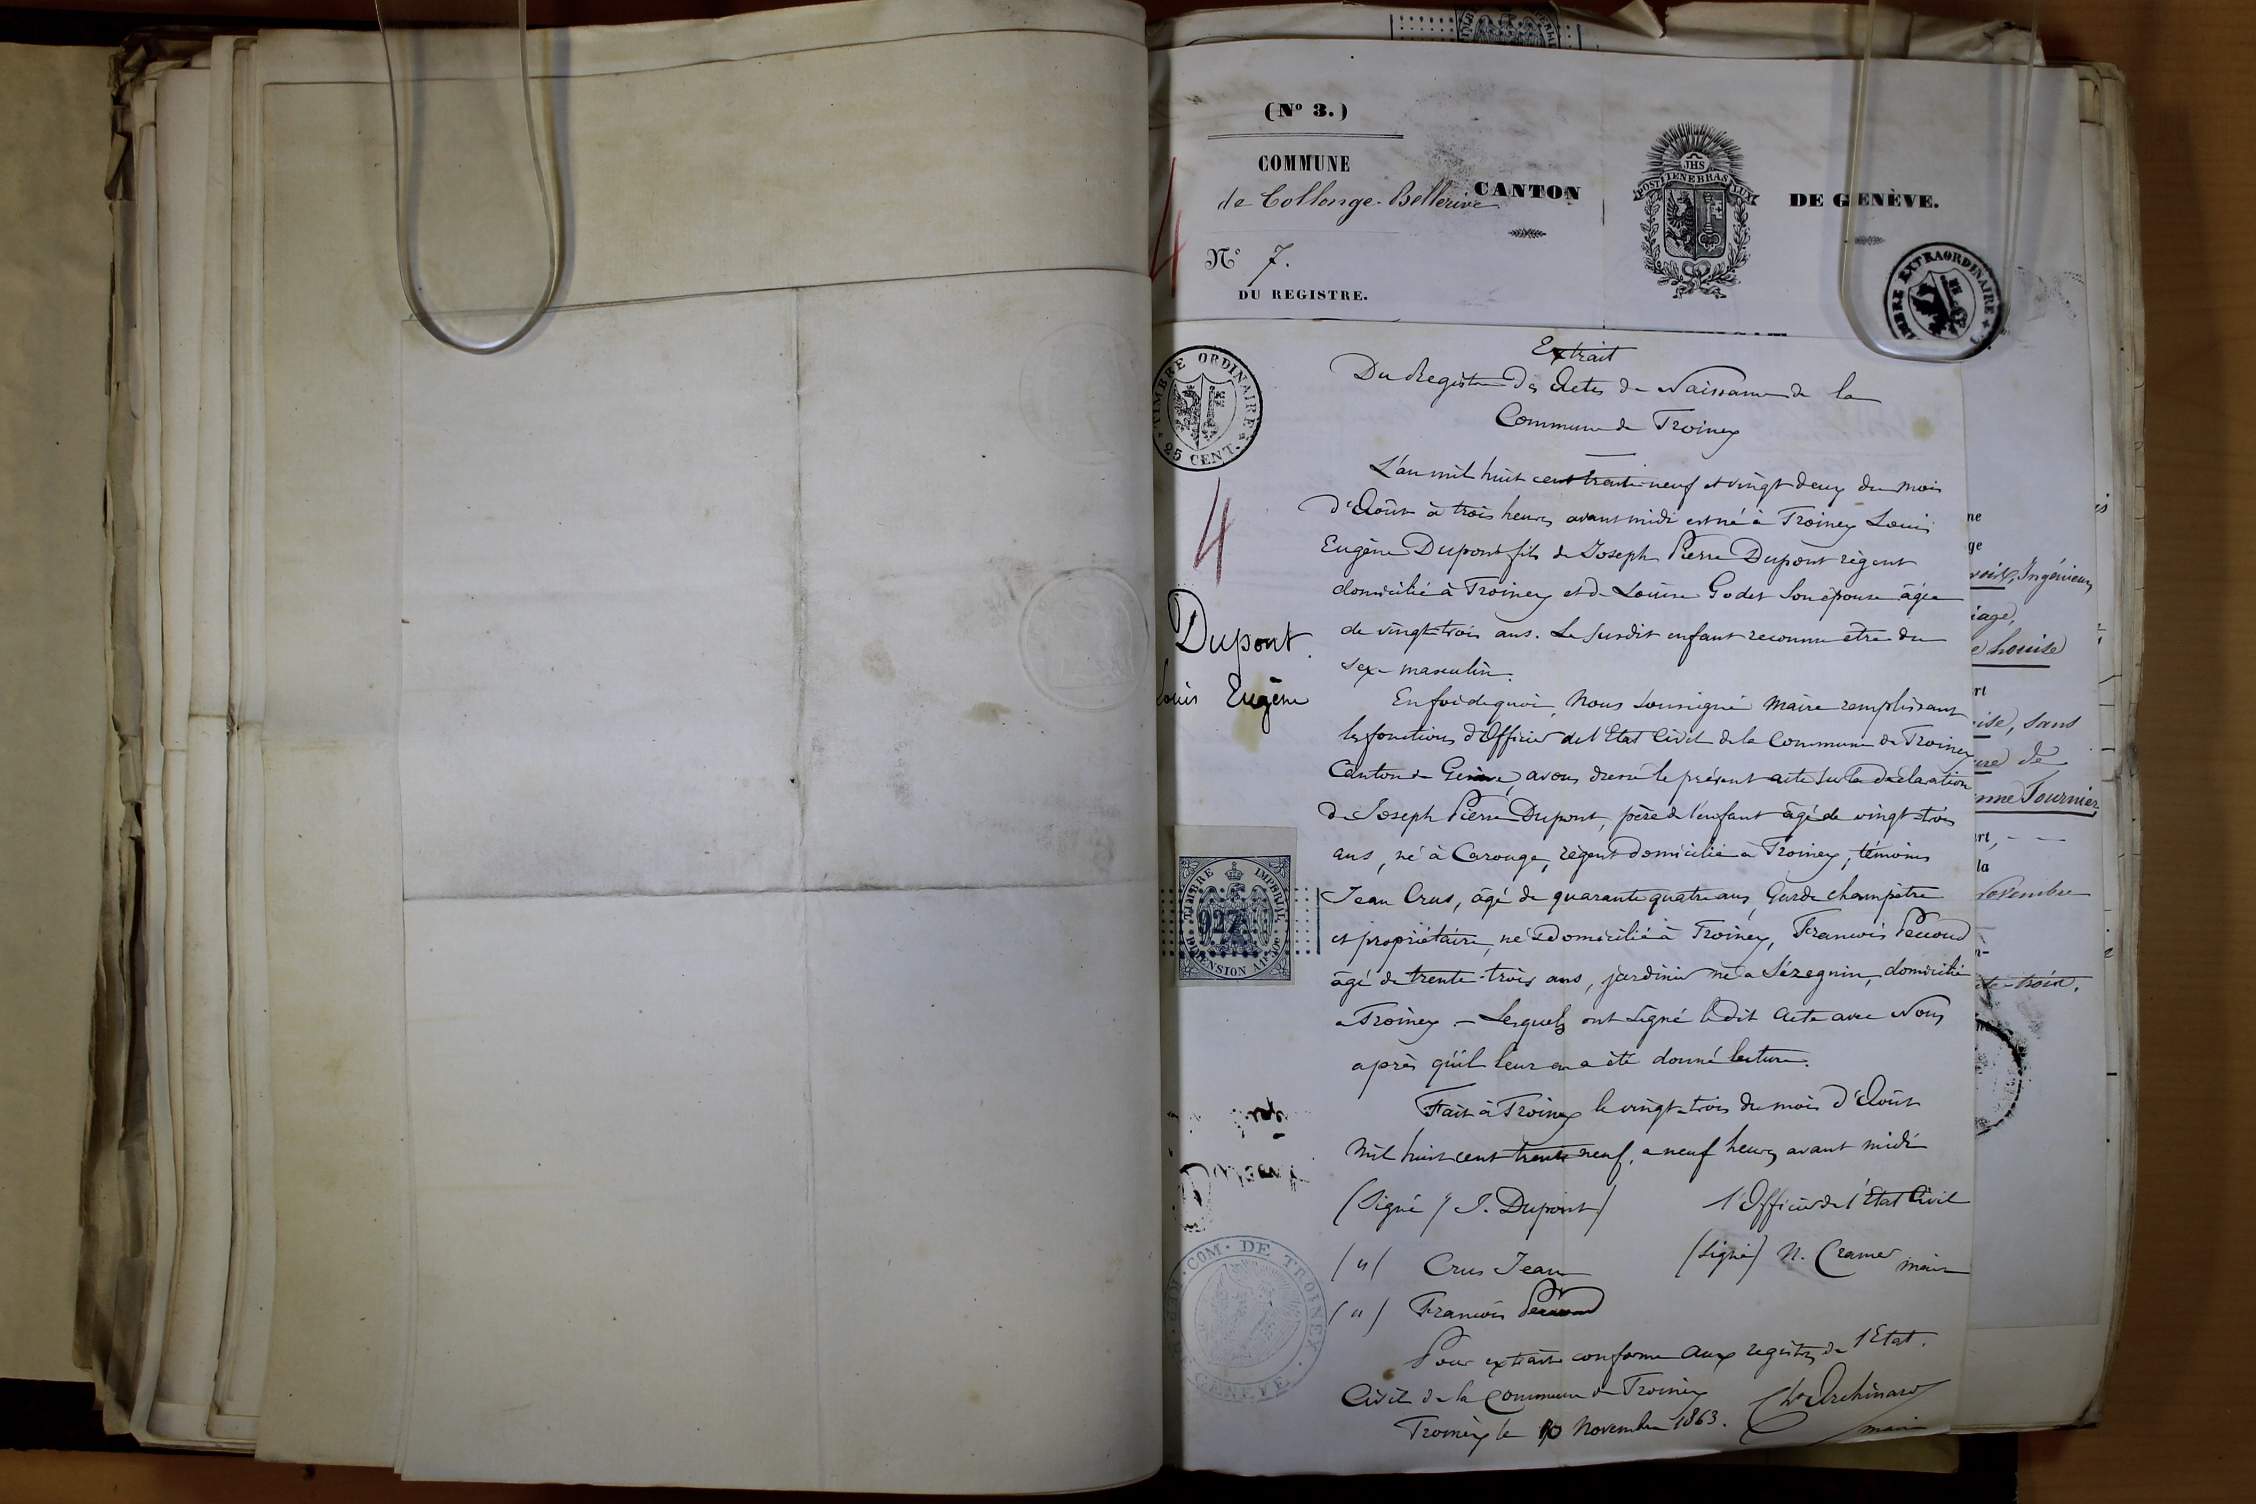 (Nº 3.)
COMMUNE
de Collonge-Bellerive
CANTON
DE GENÈVE.
JHS
POST TENEBRAS LUX
Nº 7.
DU REGISTRE.
TIMBRE EXTRAORDINAIRE
4
Extrait
Du Registre des Actes de Naissance de la
Commune de Troinex
TIMBRE ORDINAIRE
25 CENT.
4
Dupont
Louis Eugène
L'an mil huit cent trente neuf et vingt deux du mois
d'Août à trois heures avant midi est né à Troinex Louis
Eugène Dupont fils de Joseph Pierre Dupont régent
domicilié à Troinex et de Louise Godet son épouse âgée
de vingt-trois ans. Le susdit enfant reconnu être du
sexe masculin.
En foi de quoi, Nous soussigné Maire remplissant
les fonctions d'Officier de l'Etat Civil de la Commune de Troinex
Canton de Genève, avons dressé le présent acte sur la déclaration
de Joseph Pierre Dupont, père de l'enfant âgé de vingt-trois
ans, né à Carouge, régent domicilié à Troinex, témoins
Jean Crus, âgé de quarante quatre ans, Garde champêtre
et propriétaire, né & domicilié à Troinex, François
âgé de trente-trois ans, jardinier né à Sézegnin, domicilié
à Troinex – Lesquels ont signé le dit acte avec Nous
après qu'il leur en a été donné lecture.
Fait à Troinex le vingt-trois du mois d'Août
Mil huit cent trente neuf, à neuf heures avant midi
(Signé) J. Dupont
l'Officier de l'Etat Civil
(") Crus Jean
(signé) N. Cramer maire
(") François
Pour extrait conforme aux registres de l'Etat.
Civil de la Commune de Troinex
Troinex le 10 Novembre 1863.
Archinard
maire
TIMBRE IMPERIAL
927
DIMENSION
COM. DE TROINEX
GENEVE
Ingénieur
iage,
Louise
ise, sans
de
Fournier
Novembre
la